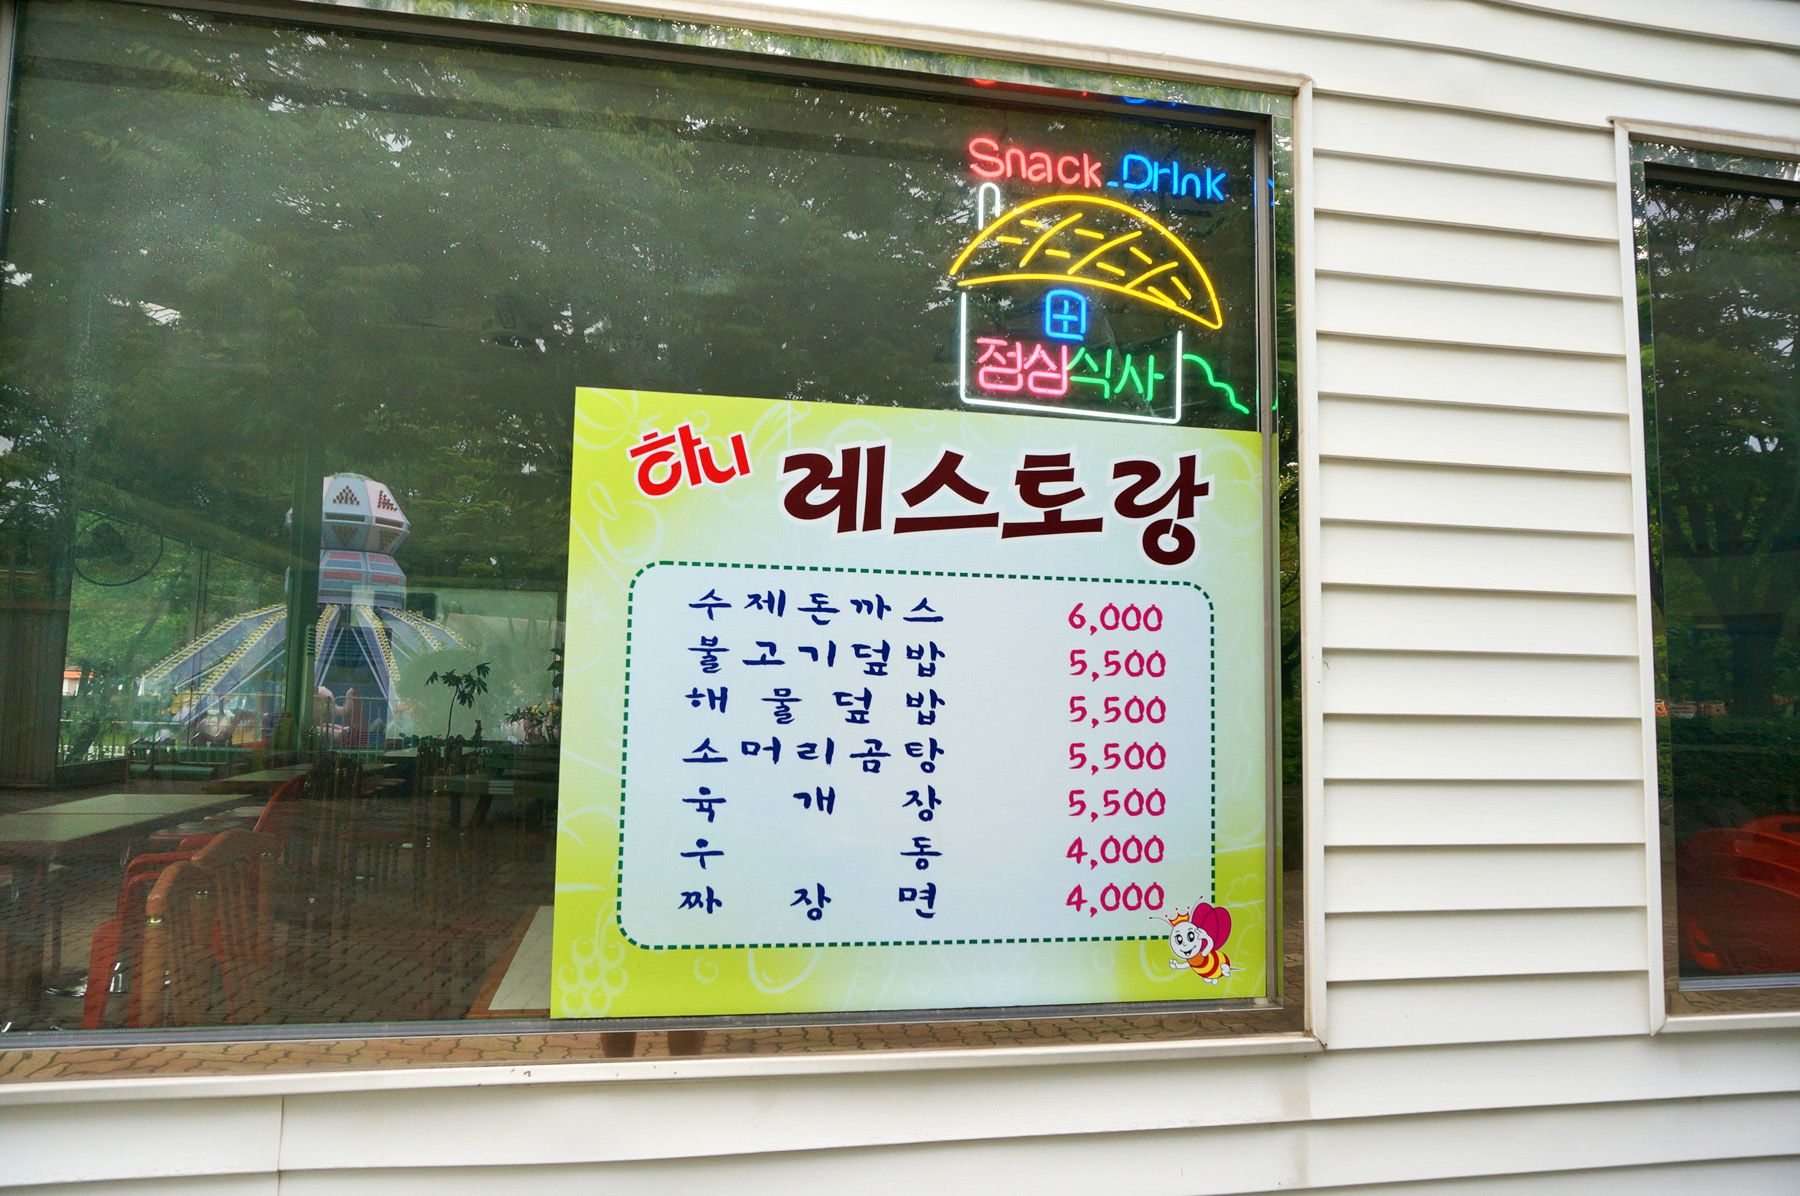 Snack Drink
점심식사
하니 레스토랑
수제돈까스 6,000
불고기덮밥 5,500
해물덮밥 5,500
소머리곰탕 5,500
육개장 5,500
우동 4,000
짜장면 4,000